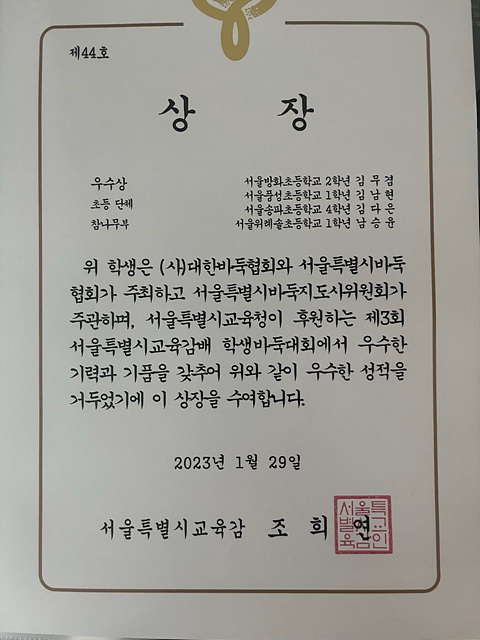 제44호
상 장
우수상 서울방화초등학교 2학년 김 무 겸
초등 단체 서울풍성초등학교 1학년 김 남 현
서울송파초등학교 4학년 김 다 은
참나무부 서울위례솔초등학교 1학년 남 승 윤
위 학생은 (사)대한바둑협회와 서울특별시바둑
협회가 주최하고 서울특별시바둑지도사위원회가
주관하며, 서울특별시교육청이 후원하는 제3회
서울특별시교육감배 학생바둑대회에서 우수한
기력과 기품을 갖추어 위와 같이 우수한 성적을
거두었기에 이 상장을 수여합니다.
2023년 1월 29일
서울특별시교육감 조 희 연
서울특
별시교
육감인